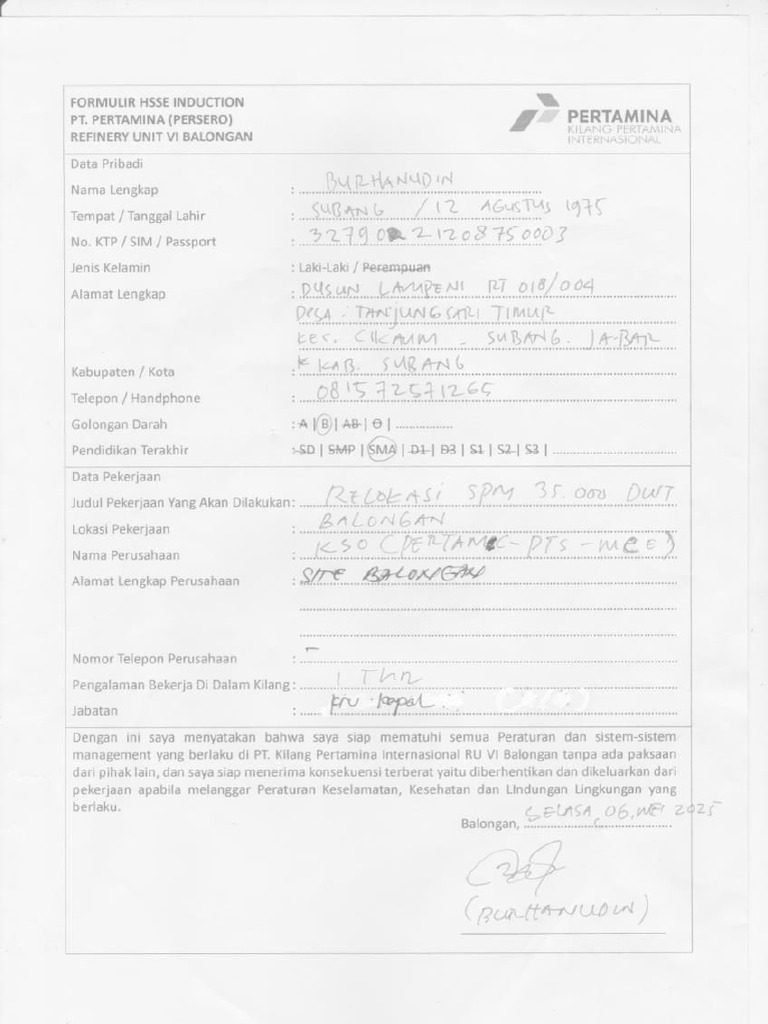 FORMULIR HSSE INDUCTION
PT. PERTAMINA (PERSERO)
REFINERY UNIT VI BALONGAN
PERTAMINA
KILANG PERTAMINA
INTERNASIONAL
Data Pribadi
Nama Lengkap : BURHANUDIN
Tempat / Tanggal Lahir : SUBANG / 12 AGUSTUS 1975
No. KTP / SIM / Passport :
Jenis Kelamin : Laki-Laki / Perempuan
Alamat Lengkap : DUSUN LAMPENI RT 018/004
DESA : TANJUNGSARI TIMUR
KEC. CIKAUM . SUBANG. JA-BAR
Kabupaten / Kota : KAB. SUBANG
Telepon / Handphone : 081572571265
Golongan Darah : A | B | AB | O | ...............
Pendidikan Terakhir : SD | SMP | SMA | D1 | D3 | S1 | S2 | S3 | ...............
Data Pekerjaan
Judul Pekerjaan Yang Akan Dilakukan : RELOKASI SPM 35.000 DWT
Lokasi Pekerjaan : BALONGAN
Nama Perusahaan : KSO (PERTAMC-PTS-MCE)
Alamat Lengkap Perusahaan : SITE BALONGAN
Nomor Telepon Perusahaan : -
Pengalaman Bekerja Di Dalam Kilang : 1 THN
Jabatan : kru kapal
Dengan ini saya menyatakan bahwa saya siap mematuhi semua Peraturan dan sistem-sistem
management yang berlaku di PT. Kilang Pertamina Internasional RU VI Balongan tanpa ada paksaan
dari pihak lain, dan saya siap menerima konsekuensi terberat yaitu diberhentikan dan dikeluarkan dari
pekerjaan apabila melanggar Peraturan Keselamatan, Kesehatan dan LIndungan Lingkungan yang
berlaku.
Balongan, SELASA, 06, MEI 2025
(BURHANUDIN)